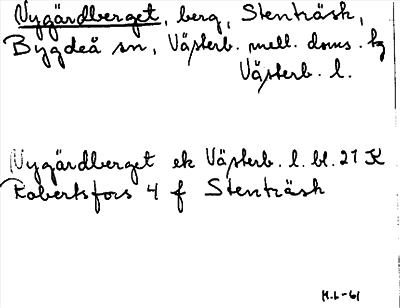 Nygärdberget, berg, Stenträsk,
Bygdeå sn, Västerb. mell. doms. hg
Västerb. l.
Nygärdberget ek Västerb. l. bl. 21 K
Robertsfors 4 f Stenträsk
H.L-61